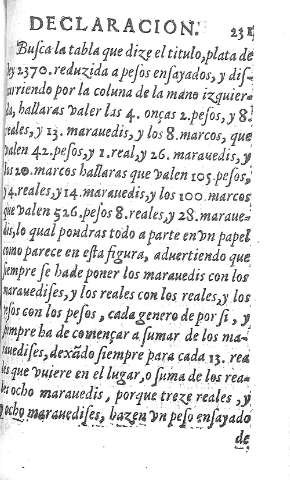 DECLARACION. 231
Busca la tabla que dize el titulo, plata de
ley 2370. reduzida a pesos ensayados, y dis-
curriendo por la coluna de la mano izquier-
da, hallaras valer las 4. onças 2. pesos, y 8.
reales, y 13. marauedis, y los 8. marcos, que
valen 42. pesos, y 1. real, y 26. marauedis, y
los 20. marcos hallaras que valen 105. pesos,
y 4. reales, y 14. marauedis, y los 100. marcos
que valen 526. pesos 8. reales, y 28. maraue-
dis, lo qual pondras todo a parte en vn papel
como parece en esta figura, aduertiendo que
siempre se ha de poner los marauedis con los
marauedises, y los reales con los reales, y los
pesos con los pesos, cada genero de por si, y
siempre ha de començar a sumar de los ma-
rauedises, dexādo siempre para cada 13. rea
les que vuiere en el lugar, o suma de los rea-
les ocho marauedis, porque treze reales, y
ocho marauedises, hazen vn peso ensayado
de